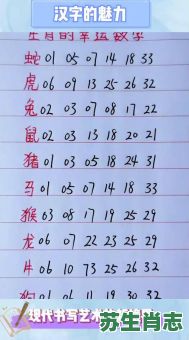 汉字的魅力
生肖的幸运数字
蛇 01 05 07 14 18 33
虎 06 09 13 25 26 32
兔 02 03 07 08 17 22
鼠 02 03 13 18 20 21
猪 01 03 05 18 24 31
马 01 05 07 14 18 33
猴 03 08 17 19 25 29
龙 06 07 22 23 25 29
牛 06 10 73 25 26 32
狗 01 06 11 19 30 32
现代书写艺术
苏生肖志